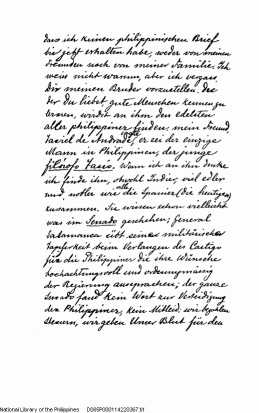 dass ich keinen philippinischen Brief
bis jetzt erhalten habe, weder von meinen
Freunden noch von meiner Familie. Ich
weiss nicht warum, aber ich vergass
dir meinen Bruder vorzustellen. Da
der du liebst gute Menschen kennen zu
lernen, wirdst an ihm den edelsten
aller philippiner finden; mein Freund
Taviel de Andrade, er sei der einzige
Mann in Philippinen; der junge
filósofo Tasio. Wenn ich an ihn denke
ich finde ihn, obwohl Indier, viel edler
und nobler als alle die Spanier (die heutigen)
zusammen. Sie wissen schon vielleicht
was im Senado geschehen; General
Salamanca übt seine militärische
Tapferkeit beim Verlangen des Castigo
für die Philippiner die ihre Wünsche
hochachtungsvoll und ordnungsmässig
der Regierung aussprachen; der ganze
Senado fand kein Wort zur Verteidigung
der Philippiner, kein Mitleid; wir bezahlen
Steuern, wir geben unser Blut für den
National Library of the Philippines D005P00011422036731